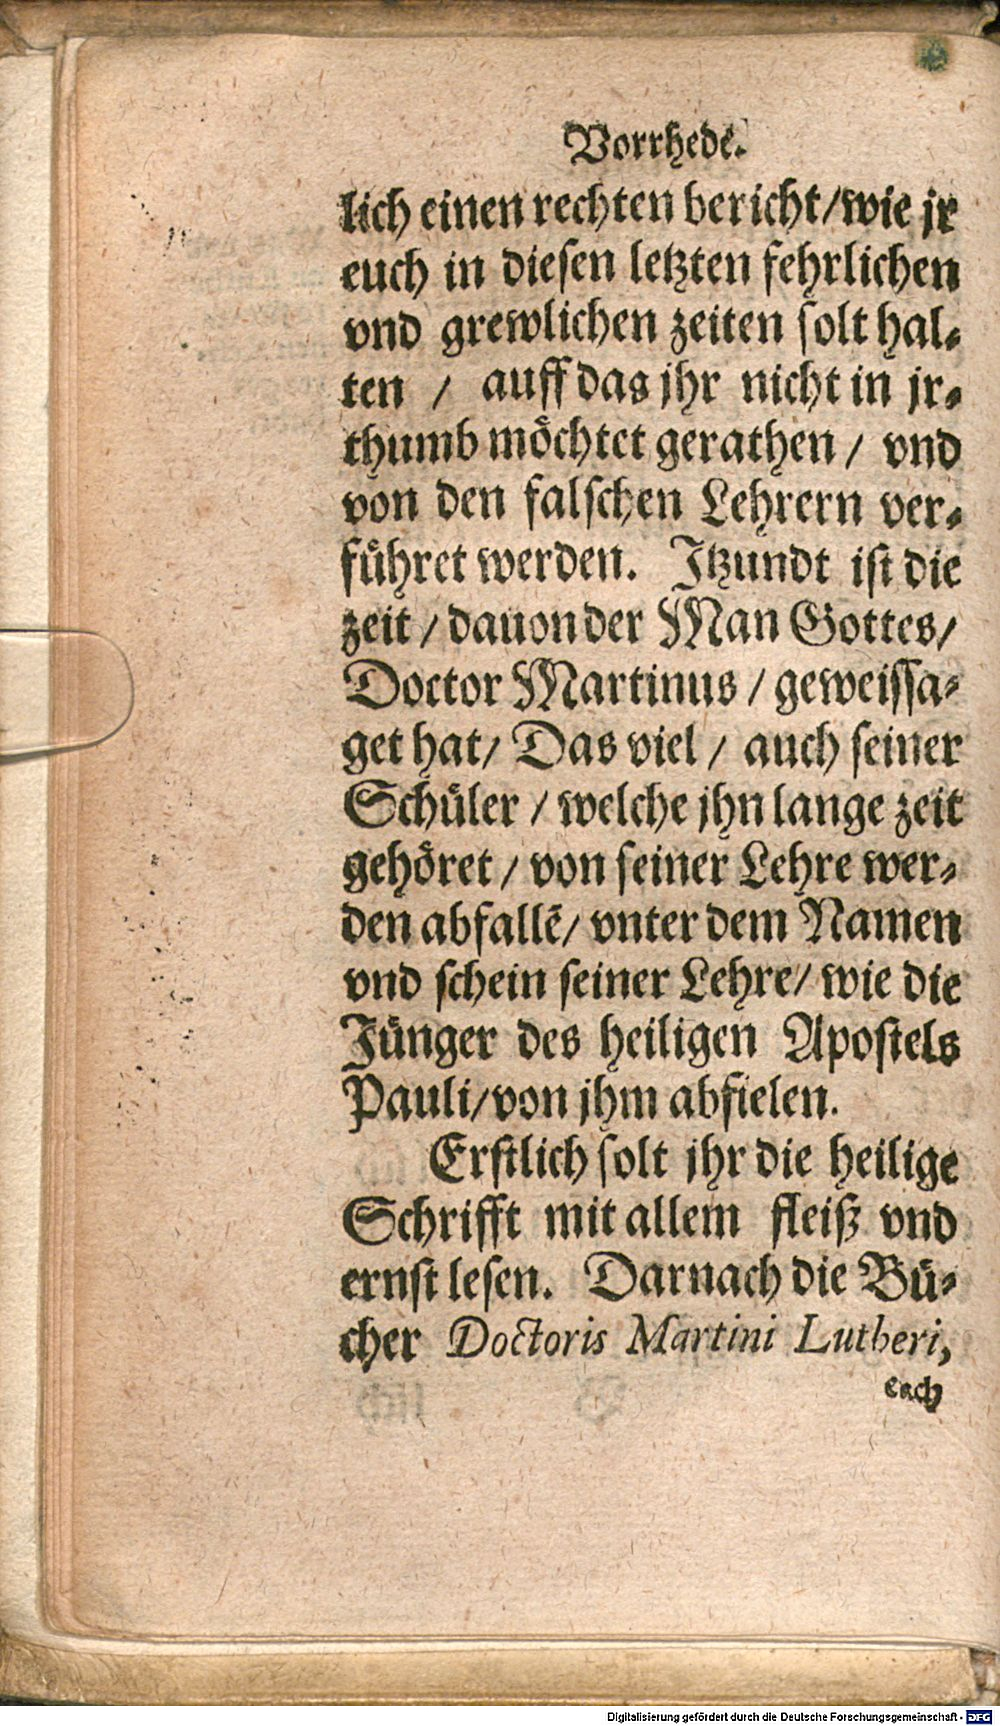 Vorrhede.
lich einen rechten bericht/wie jr
euch in diesen letzten fehrlichen
vnd grewlichen zeiten solt hal-
ten / auff das jhr nicht in jr-
thumb möchtet gerathen / vnd
von den falschen Lehrern ver-
führet werden. Itzundt ist die
zeit / dauon der Man Gottes/
Doctor Martinus / geweissa-
get hat/ Das viel / auch seiner
Schüler / welche jhn lange zeit
gehöret / von seiner Lehre wer-
den abfallē/ vnter dem Namen
vnd schein seiner Lehre/ wie die
Jünger des heiligen Apostels
Pauli/von jhm abfielen.
Erstlich solt jhr die heilige
Schrifft mit allem fleiß vnd
ernst lesen. Darnach die Bü-
cher Doctoris Martini Lutheri,
Digitalisierung gefördert durch die Deutsche Forschungsgemeinschaft - DFG